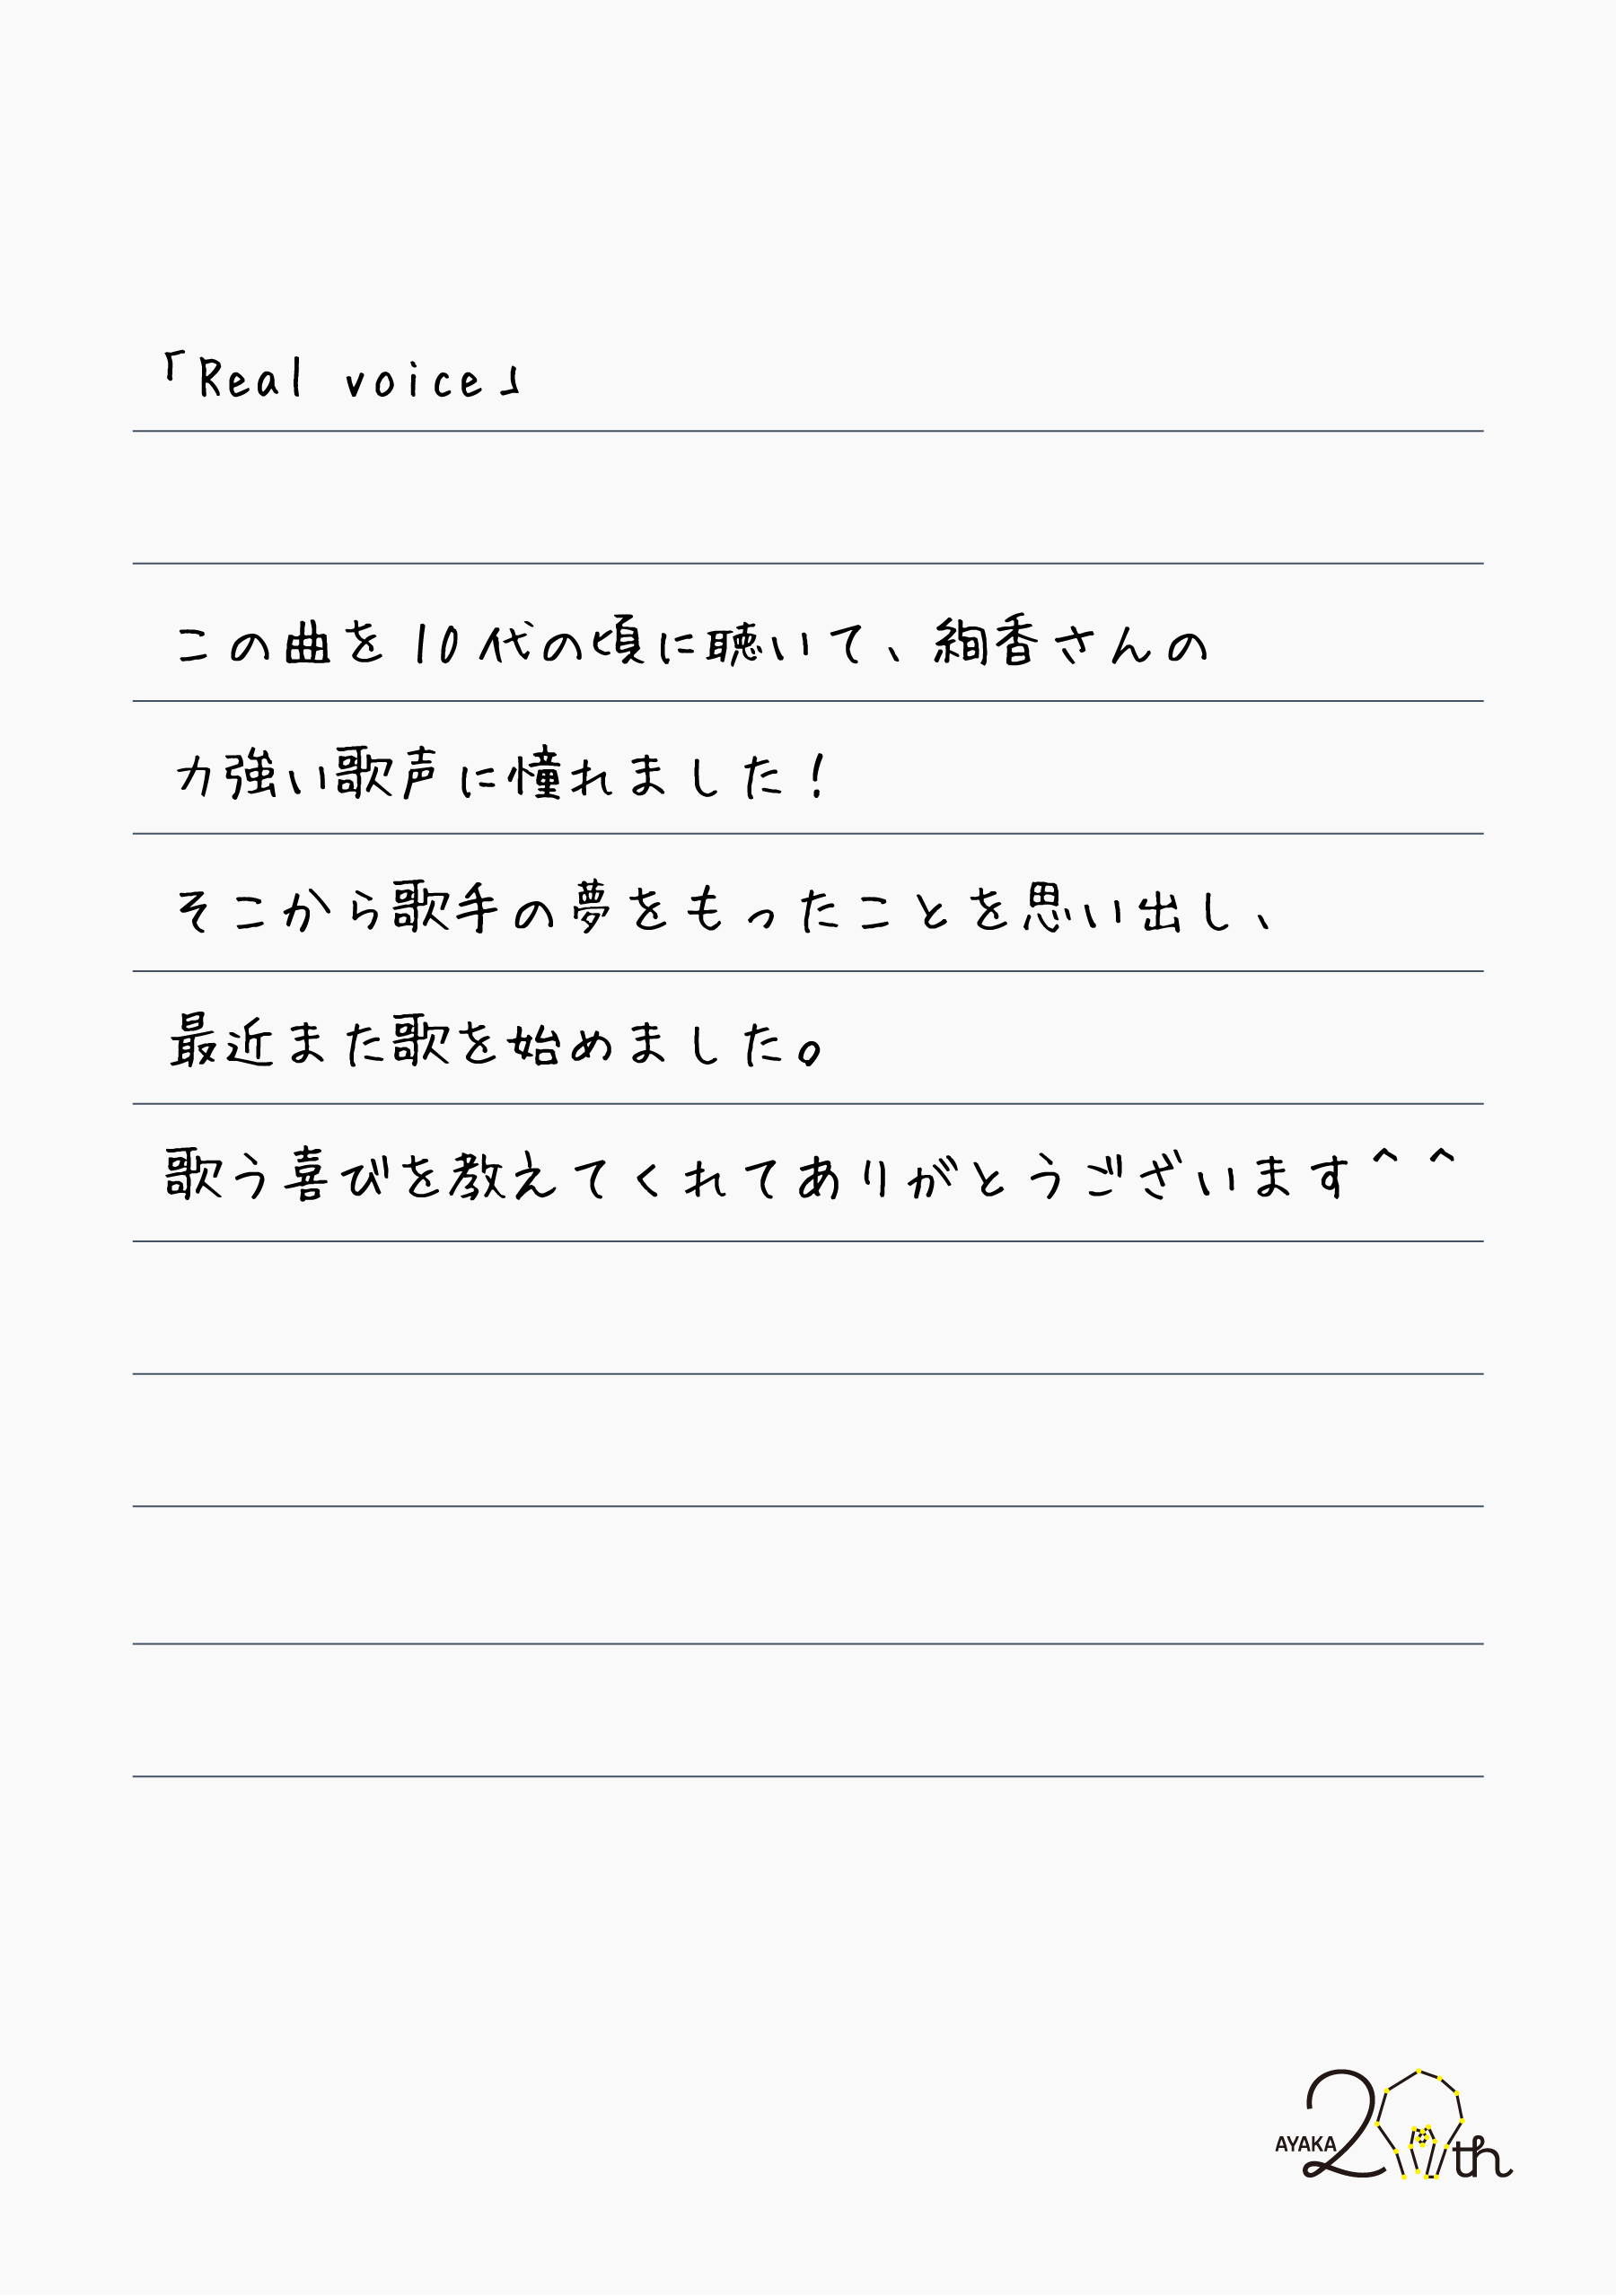 「Real voice」
この曲を10代の頃に聴いて、絢香さんの
力強い歌声に憧れました！
そこから歌手の夢をもったことを思い出し、
最近また歌を始めました。
歌う喜びを教えてくれてありがとうございます^ ^
AYAKA 20th